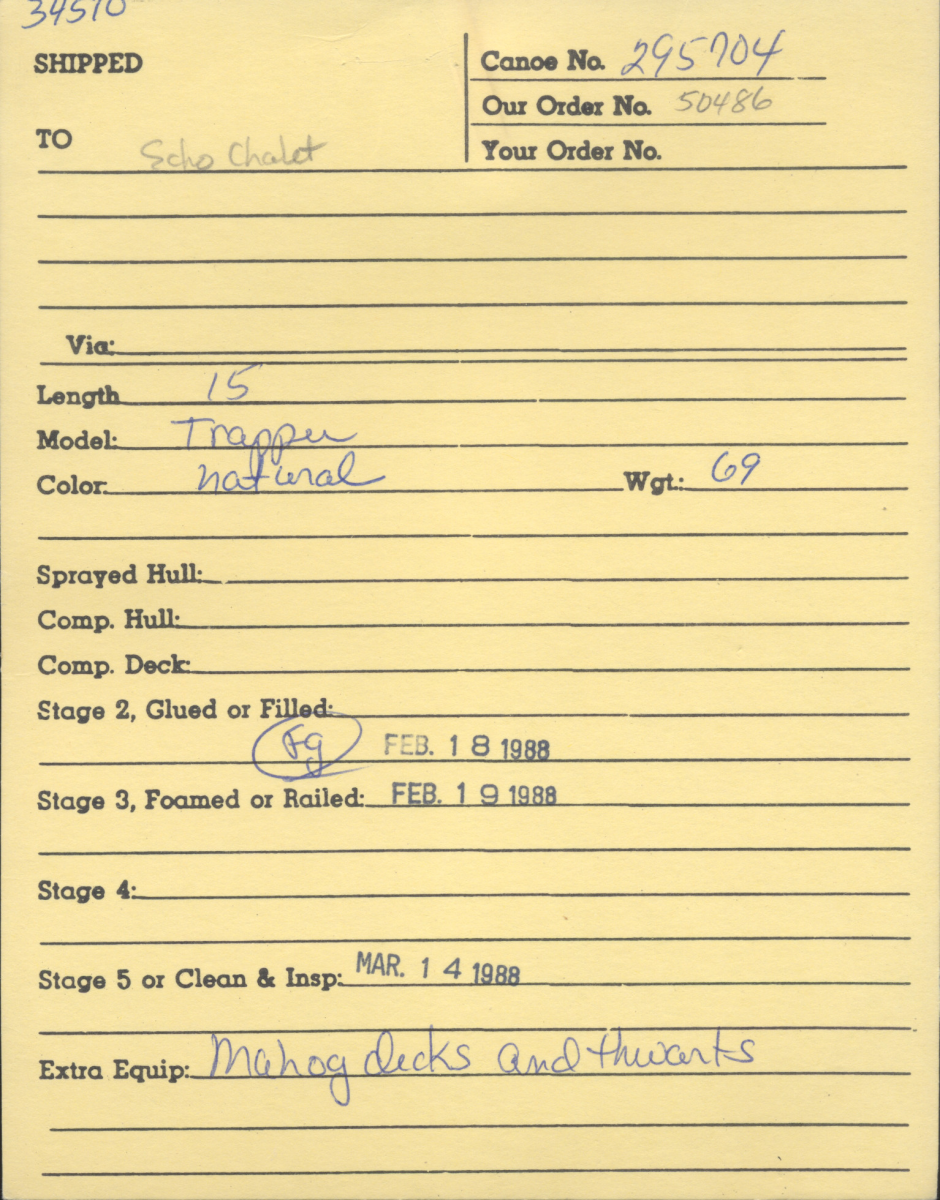 34510
SHIPPED
Canoe No. 295704
Our Order No. 50486
TO Echo Chalet
Your Order No.
Via:
Length 15
Model: Trapper
Color: natural Wgt.: 69
Sprayed Hull:
Comp. Hull:
Comp. Deck:
Stage 2, Glued or Filled:
Fg FEB. 18 1988
Stage 3, Foamed or Railed: FEB. 19 1988
Stage 4:
Stage 5 or Clean & Insp: MAR. 14 1988
Extra Equip: Mahog decks and thwarts